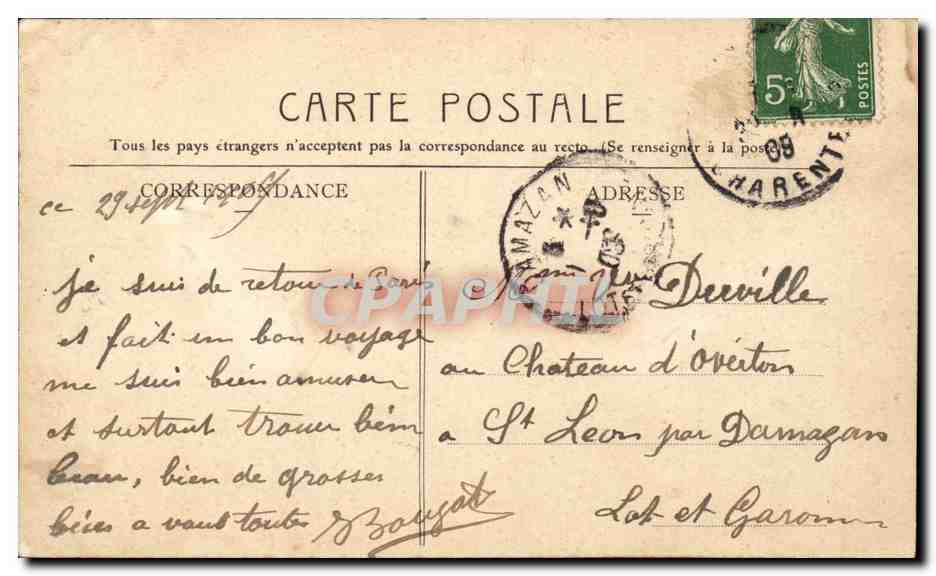 5c
POSTES
CARTE POSTALE
Tous les pays étrangers n'acceptent pas la correspondance au recto. (Se renseigner à la poste
09
CHARENTE
CORRESPONDANCE
ADRESSE
DAMAZAN
ce 29 sept
je suis de retour de Paris
et fait un bon voyage
me suis bien amuser
et surtout trouver bien
beau, bien de grosses
bises a vous toutes Bougat
CPAPHIL
Deuville
au Chateau d'Overton
a St Leon par Damazan
Lot et Garonne